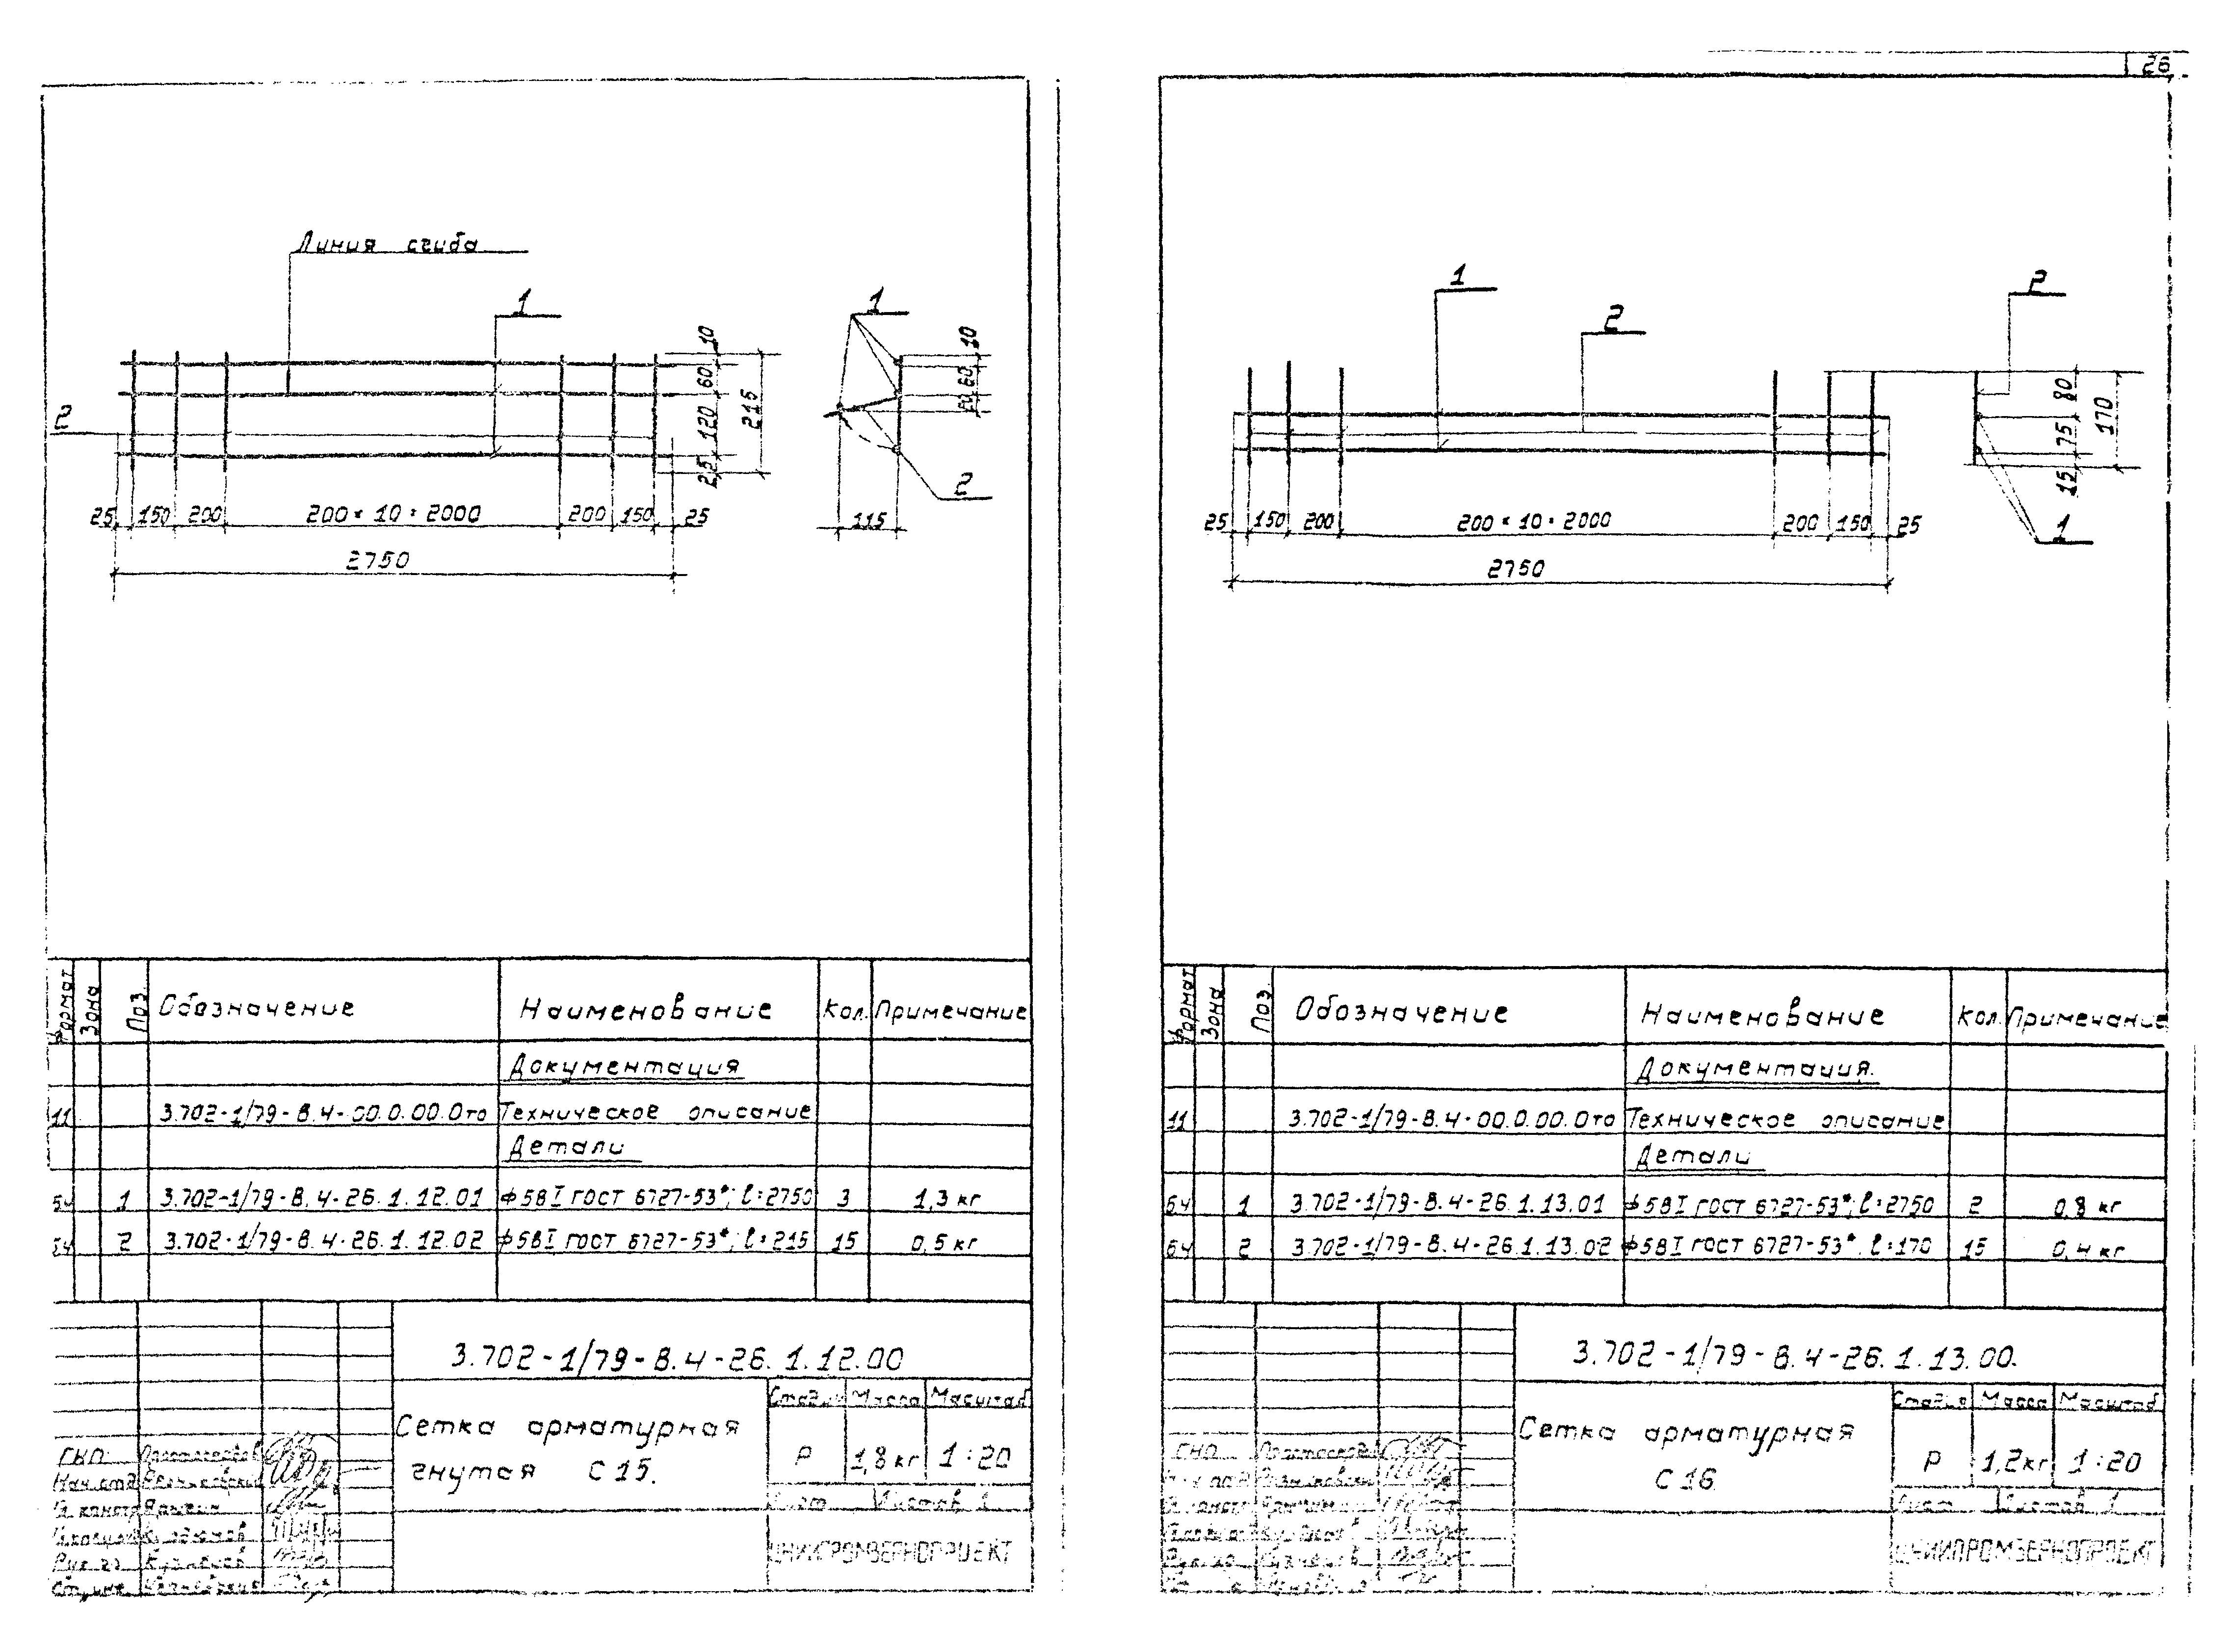 26
Линия сгиба
1
1
2
10
60
120
25
215
10
60
20
2
25 150 200 200 × 10 = 2000 200 150 25
115
2750
Формат Зона Поз. Обозначение Наименование Кол. Примечание
Документация
11 3.702-1/79-В.4-00.0.00.0то Техническое описание
Детали
БЧ 1 3.702-1/79-В.4-26.1.12.01 ф5ВI ГОСТ 6727-53*; ℓ=2750 3 1,3 кг
БЧ 2 3.702-1/79-В.4-26.1.12.02 ф5ВI ГОСТ 6727-53*; ℓ=215 15 0,5 кг
3.702-1/79-В.4-26.1.12.00
Сетка арматурная
гнутая С15.
Стадия Масса Масштаб
Р 1,8 кг 1:20
Лист Листов 1
ГИП
Нач. отд.
Гл. констр.
Рук. гр. Кузнецов
Ст. инж.
ЦНИИПРОМЗЕРНОПРОЕКТ
1
2
2
80
75
15
170
1
25 150 200 200 × 10 = 2000 200 150 25
2750
Формат Зона Поз. Обозначение Наименование Кол. Примечание
Документация.
11 3.702-1/79-В.4-00.0.00.0то Техническое описание
Детали
БЧ 1 3.702-1/79-В.4-26.1.13.01 ф5ВI ГОСТ 6727-53*; ℓ=2750 2 0,8 кг
БЧ 2 3.702-1/79-В.4-26.1.13.02 ф5ВI ГОСТ 6727-53*. ℓ=170 15 0,4 кг
3.702-1/79-В.4-26.1.13.00.
Сетка арматурная
С16
Стадия Масса Масштаб
Р 1,2 кг 1:20
Лист Листов 1
ГИП
ЦНИИПРОМЗЕРНОПРОЕКТ